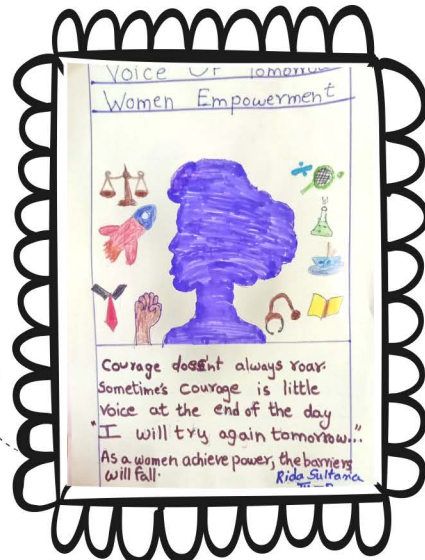 Voice Of Tomorrow
Women Empowerment
Courage doesn't always roar.
Sometime's courage is little
voice at the end of the day
"I will try again tomorrow..."
As a women achieve power, the barriers
will fall.
Rida Sultana